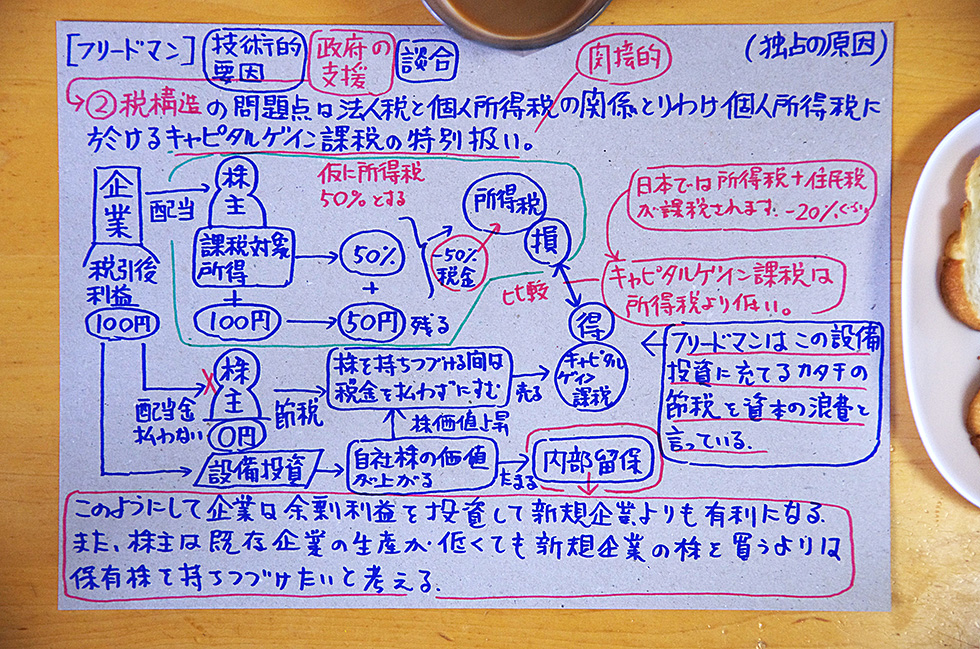 [フリードマン] 技術的 要因 政府の 支援 談合 間接的 (独占の原因)
②税構造の問題点は法人税と個人所得税の関係とりわけ個人所得税に
於けるキャピタルゲイン課税の特別扱い。
企業
配当
株主
仮に所得税
50%とする
所得税
日本では所得税+住民税
が課税されます。-20%ぐらい
税引後
利益
課税対象
所得
50%
-50%
税金
損
+
+
比較
キャピタルゲイン課税は
所得税より低い。
100円
100円
50円 残る
得
株主
配当金
払わない
0円
節税
株を持ちつづける間は
税金を払わずにすむ
売る
キャピタル
ゲイン
課税
フリードマンはこの設備
投資に充てるカタチの
節税を資本の浪費と
言っている。
株価値上昇
設備投資
自社株の価値
が上がる
たまる
内部留保
このようにして企業は余剰利益を投資して新規企業よりも有利になる。
また、株主は既存企業の生産が低くても新規企業の株を買うよりは
保有株を持ちつづけたいと考える。